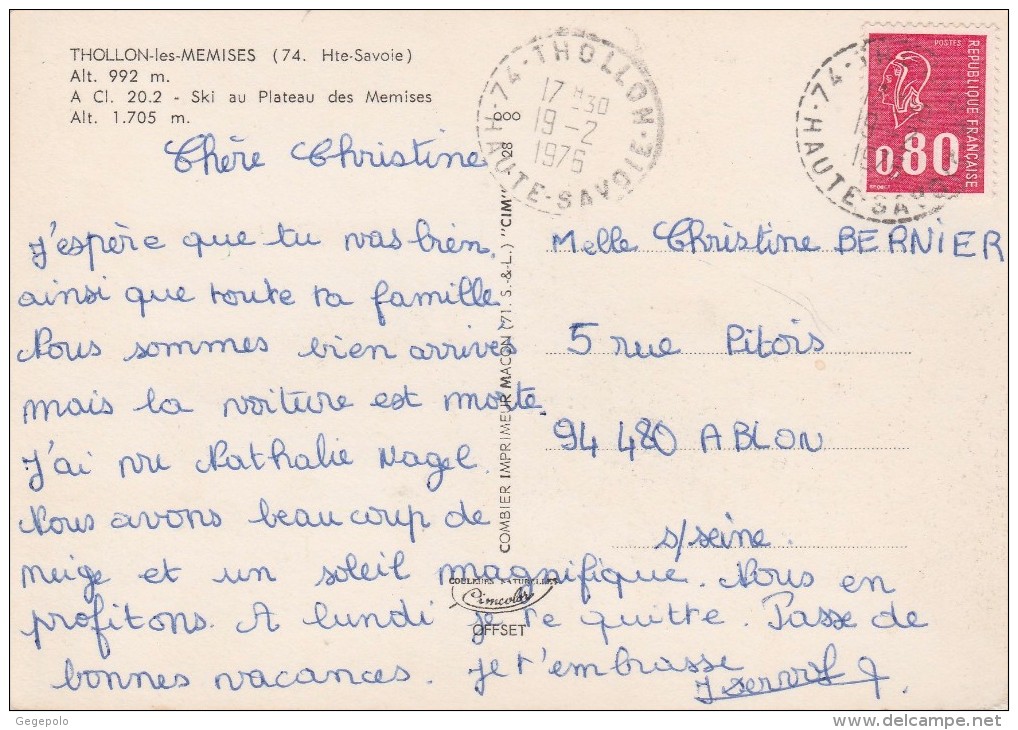 THOLLON-les-MEMISES (74. Hte-Savoie)
Alt. 992 m.
A Cl. 20.2 - Ski au Plateau des Memises
Alt. 1.705 m.
74-THOLLON-E
HAUTE-SAVOIE
17 H30
19-2
1976
POSTES
REPUBLIQUE FRANÇAISE
0,80
HAUTE-SA
Chère Christine
J'espère que tu vas bien,
ainsi que toute ta famille
Nous sommes bien arrivés
mais la voiture est morte.
J'ai vu Nathalie Nagel.
Nous avons beaucoup de
neige et un soleil magnifique. Nous en
profitons. A lundi je te quitte. Passe de
bonnes vacances. Je t'embrasse
COMBIER IMPRIMEUR MACON (71. S.-&-L.) "CIM"
COULEURS NATURELLES
Cimcolor
OFFSET
Melle Christine BERNIER
5 rue Pitois
94 480 ABLON
s/seine.
Gegepolo
delcampe.net